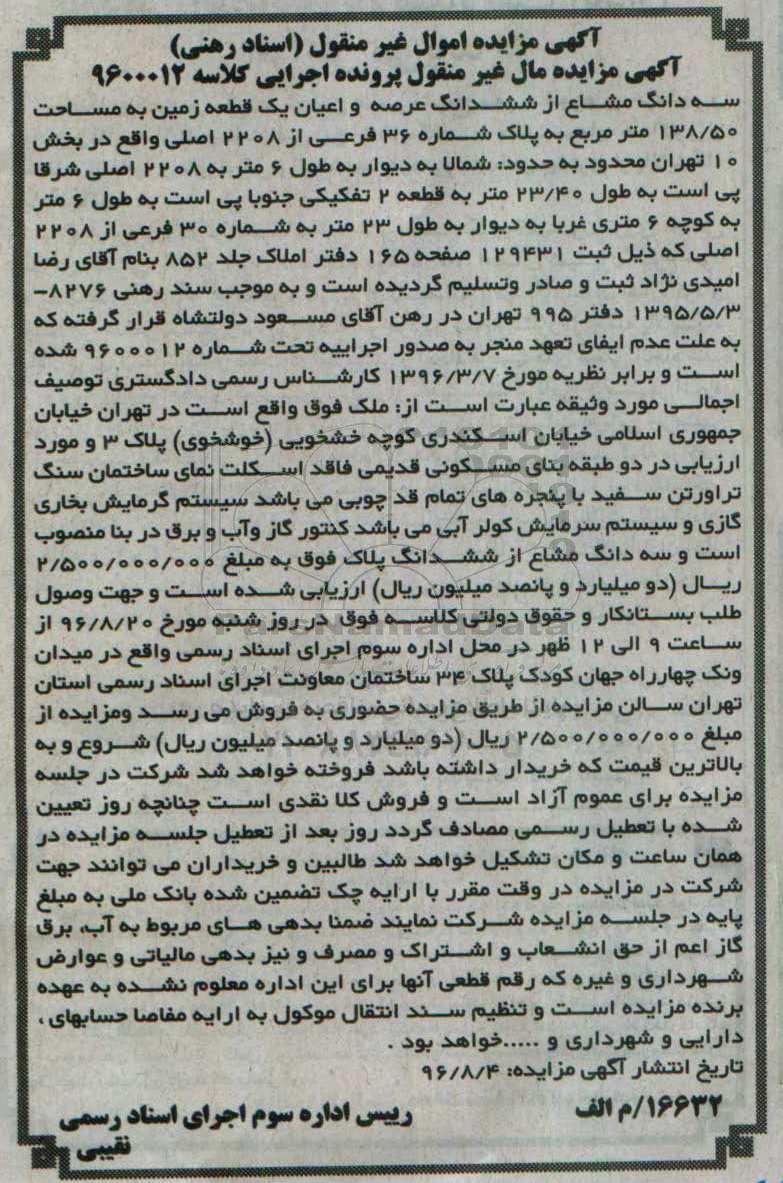 آگهی مزایده اموال غیر منقول (اسناد رهنی)
آگهی مزایده مال غیر منقول پرونده اجرایی کلاسه ۹۶۰۰۰۱۲
سه دانگ مشاع از ششدانگ عرصه و اعیان یک قطعه زمین به مساحت
۱۳۸/۵۰ متر مربع به پلاک شماره ۳۶ فرعی از ۲۲۰۸ اصلی واقع در بخش
۱۰ تهران محدود به حدود: شمالا به دیوار به طول ۶ متر به ۲۲۰۸ اصلی شرقا
پی است به طول ۲۳/۴۰ متر به قطعه ۲ تفکیکی جنوبا پی است به طول ۶ متر
به کوچه ۶ متری غربا به دیوار به طول ۲۳ متر به شماره ۳۰ فرعی از ۲۲۰۸
اصلی که ذیل ثبت ۱۲۹۴۳۱ صفحه ۱۶۵ دفتر املاک جلد ۸۵۲ بنام آقای رضا
امیدی نژاد ثبت و صادر وتسلیم گردیده است و به موجب سند رهنی ۸۲۷۶-
۱۳۹۵/۵/۳ دفتر ۹۹۵ تهران در رهن آقای مسعود دولتشاه قرار گرفته که
به علت عدم ایفای تعهد منجر به صدور اجراییه تحت شماره ۹۶۰۰۰۱۲ شده
است و برابر نظریه مورخ ۱۳۹۶/۳/۷ کارشناس رسمی دادگستری توصیف
اجمالی مورد وثیقه عبارت است از: ملک فوق واقع است در تهران خیابان
جمهوری اسلامی خیابان اسکندری کوچه خشخویی (خوشخوی) پلاک ۳ و مورد
ارزیابی در دو طبقه بنای مسکونی قدیمی فاقد اسکلت نمای ساختمان سنگ
تراورتن سفید با پنجره های تمام قد چوبی می باشد سیستم گرمایش بخاری
گازی و سیستم سرمایش کولر آبی می باشد کنتور گاز وآب و برق در بنا منصوب
است و سه دانگ مشاع از ششدانگ پلاک فوق به مبلغ ۲/۵۰۰/۰۰۰/۰۰۰
ریال (دو میلیارد و پانصد میلیون ریال) ارزیابی شده است و جهت وصول
طلب بستانکار و حقوق دولتی کلاسه فوق در روز شنبه مورخ ۹۶/۸/۲۰ از
ساعت ۹ الی ۱۲ ظهر در محل اداره سوم اجرای اسناد رسمی واقع در میدان
ونک چهارراه جهان کودک پلاک ۳۴ ساختمان معاونت اجرای اسناد رسمی استان
تهران سالن مزایده از طریق مزایده حضوری به فروش می رسد ومزایده از
مبلغ ۲/۵۰۰/۰۰۰/۰۰۰ ریال (دو میلیارد و پانصد میلیون ریال) شروع و به
بالاترین قیمت که خریدار داشته باشد فروخته خواهد شد شرکت در جلسه
مزایده برای عموم آزاد است و فروش کلا نقدی است چنانچه روز تعیین
شده با تعطیل رسمی مصادف گردد روز بعد از تعطیل جلسه مزایده در
همان ساعت و مکان تشکیل خواهد شد طالبین و خریداران می توانند جهت
شرکت در مزایده در وقت مقرر با ارایه چک تضمین شده بانک ملی به مبلغ
پایه در جلسه مزایده شرکت نمایند ضمنا بدهی های مربوط به آب، برق
گاز اعم از حق انشعاب و اشتراک و مصرف و نیز بدهی مالیاتی و عوارض
شهرداری و غیره که رقم قطعی آنها برای این اداره معلوم نشده به عهده
برنده مزایده است و تنظیم سند انتقال موکول به ارایه مفاصا حسابهای ،
دارایی و شهرداری و .....خواهد بود .
تاریخ انتشار آگهی مزایده: ۹۶/۸/۴
۱۶۶۳۲/م الف
رییس اداره سوم اجرای اسناد رسمی
نقیبی
ParsNamadData